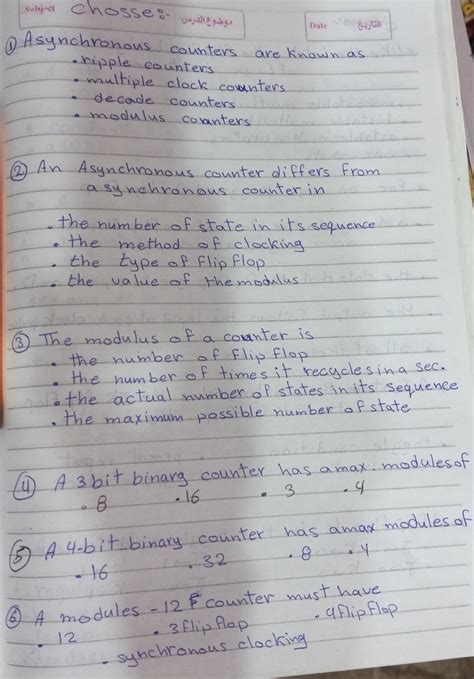 Subject
chosse:
موضوع الدرس
Date
التاريخ
① Asynchronous counters are known as
• ripple counters
• multiple clock counters
• decade counters
• modulus counters
② An Asynchronous counter differs from
a synchronous counter in
• the number of state in its sequence
• the method of clocking
• the type of flip flop
• the value of the modulus
③ The modulus of a counter is
• the number of flip flop
• the number of times it recycles in a sec.
• the actual number of states in its sequence
• the maximum possible number of state
④ A 3 bit binarg counter has a max. modules of
• 8 • 16 • 3 • 4
⑤ A 4-bit binary counter has a max modules of
• 16 • 32 • 8 • 4
⑥ A modules - 12 counter must have
• 12 • 3 flip flop • 4 flip flop
• synchronous clocking